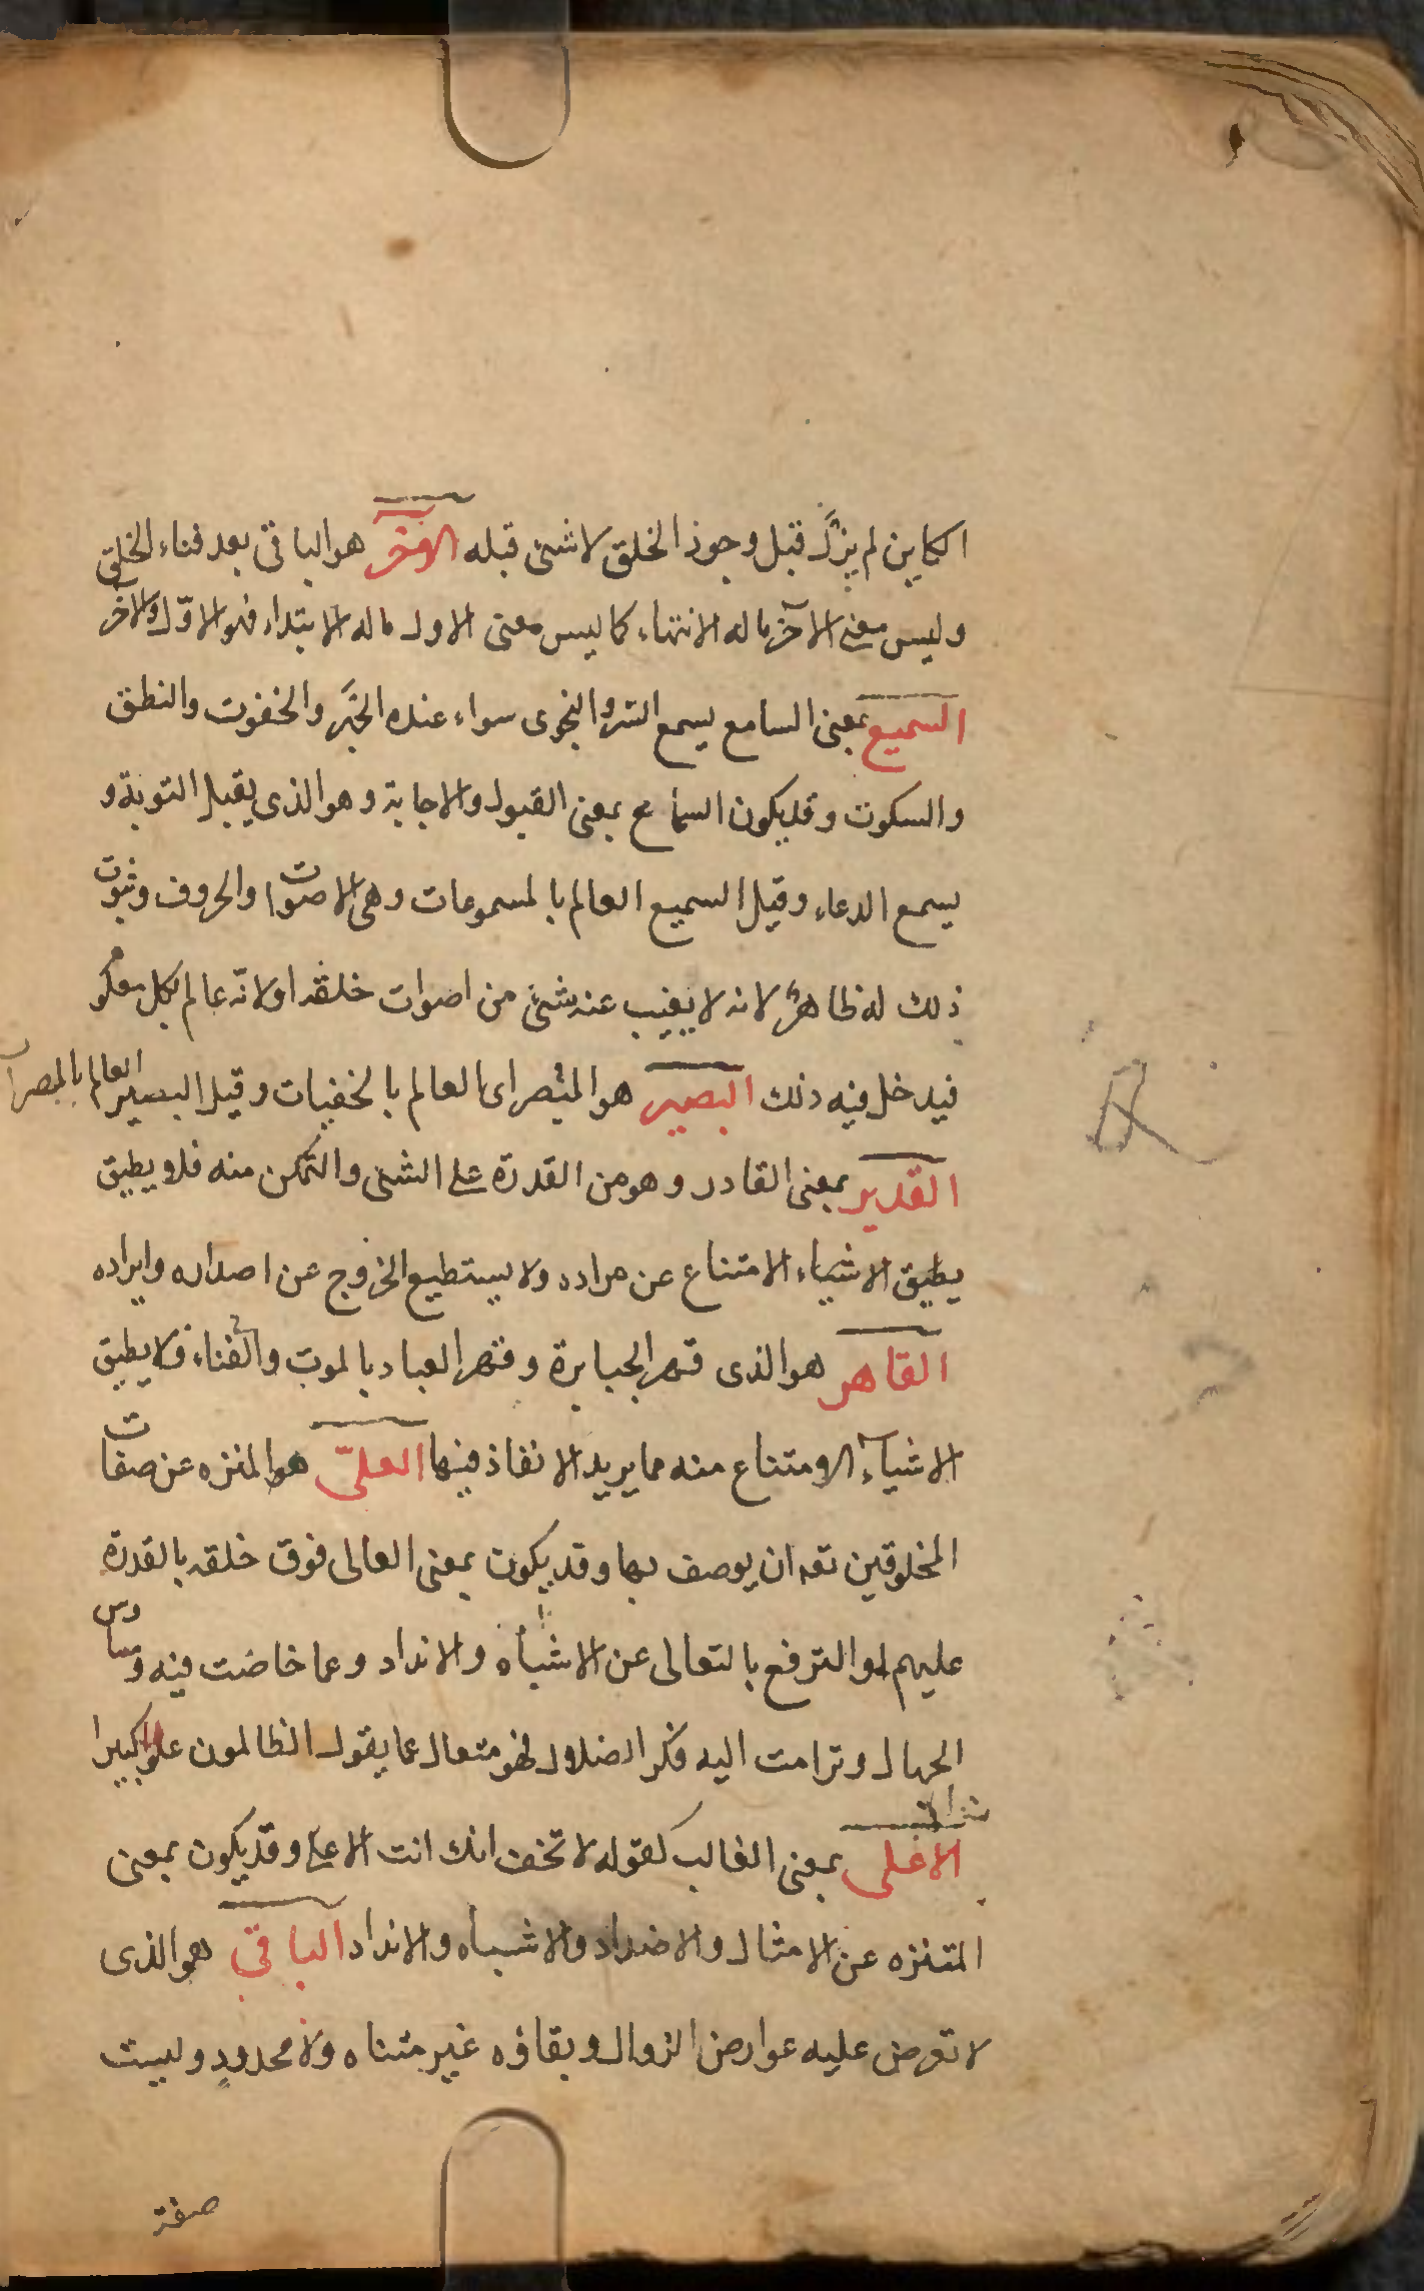 الكاين لم يزل قبل وجود الخلق لا شئ قبله الآخر هو الباقى بعد فناء الخلق
وليس معنى الآخر ما له الانتهاء كما ليس معنى الاول ما له الابتداء فهو الاوّل والآخر
السميع بمعنى السامع يسمع السر والنجوى سواء عنده الجهر والخفوت والنطق
والسكوت وقد يكون السماع بمعنى القبول والاجابة وهو الذى يقبل التوبة و
يسمع الدعاء وقيل السميع العالم بالمسموعات وهى الاصوات والحروف وثبوت
ذلك له ظاهر لانه لا يغيب عنه شئ من اصوات خلقه او لانه عالم بكل معلوم
فيدخل فيه ذلك البصير هو المبصر اى العالم بالخفيات وقيل البصير العالم بالمبصرات
القدير بمعنى القادر وهو من القدرة على الشئ والتمكن منه فلا يطيق
يطيق الاشياء الامتناع عن مراده ولا يستطيع الخروج عن اصداره وايراده
القاهر هو الذى قهر الجبابرة وقهر العباد بالموت والفناء فلا يطيق
الاشياء الامتناع منه مما يريد الانفاذ فيها العلىّ هو المنزه عن صفات
المخلوقين تعه ان يوصف بها وقد يكون بمعنى العالى فوق خلقه بالقدرة
عليهم او الترفع بالتعالى عن الاشباه والانداد وعما خاضت فيه وساوس
الجهال وترامت اليه فكر الضلال فهو متعال عما يقول الظالمون علوا كبيرا
الاعلى بمعنى الغالب كقوله لا تخف انك انت الاعلى وقد يكون بمعنى
المتنزه عن الامثال والاضداد والاشباه والانداد الباقى هو الذى
لا تعرض عليه عوارض الزوال وبقاؤه غير متناه ولا محدود وليست
صفة